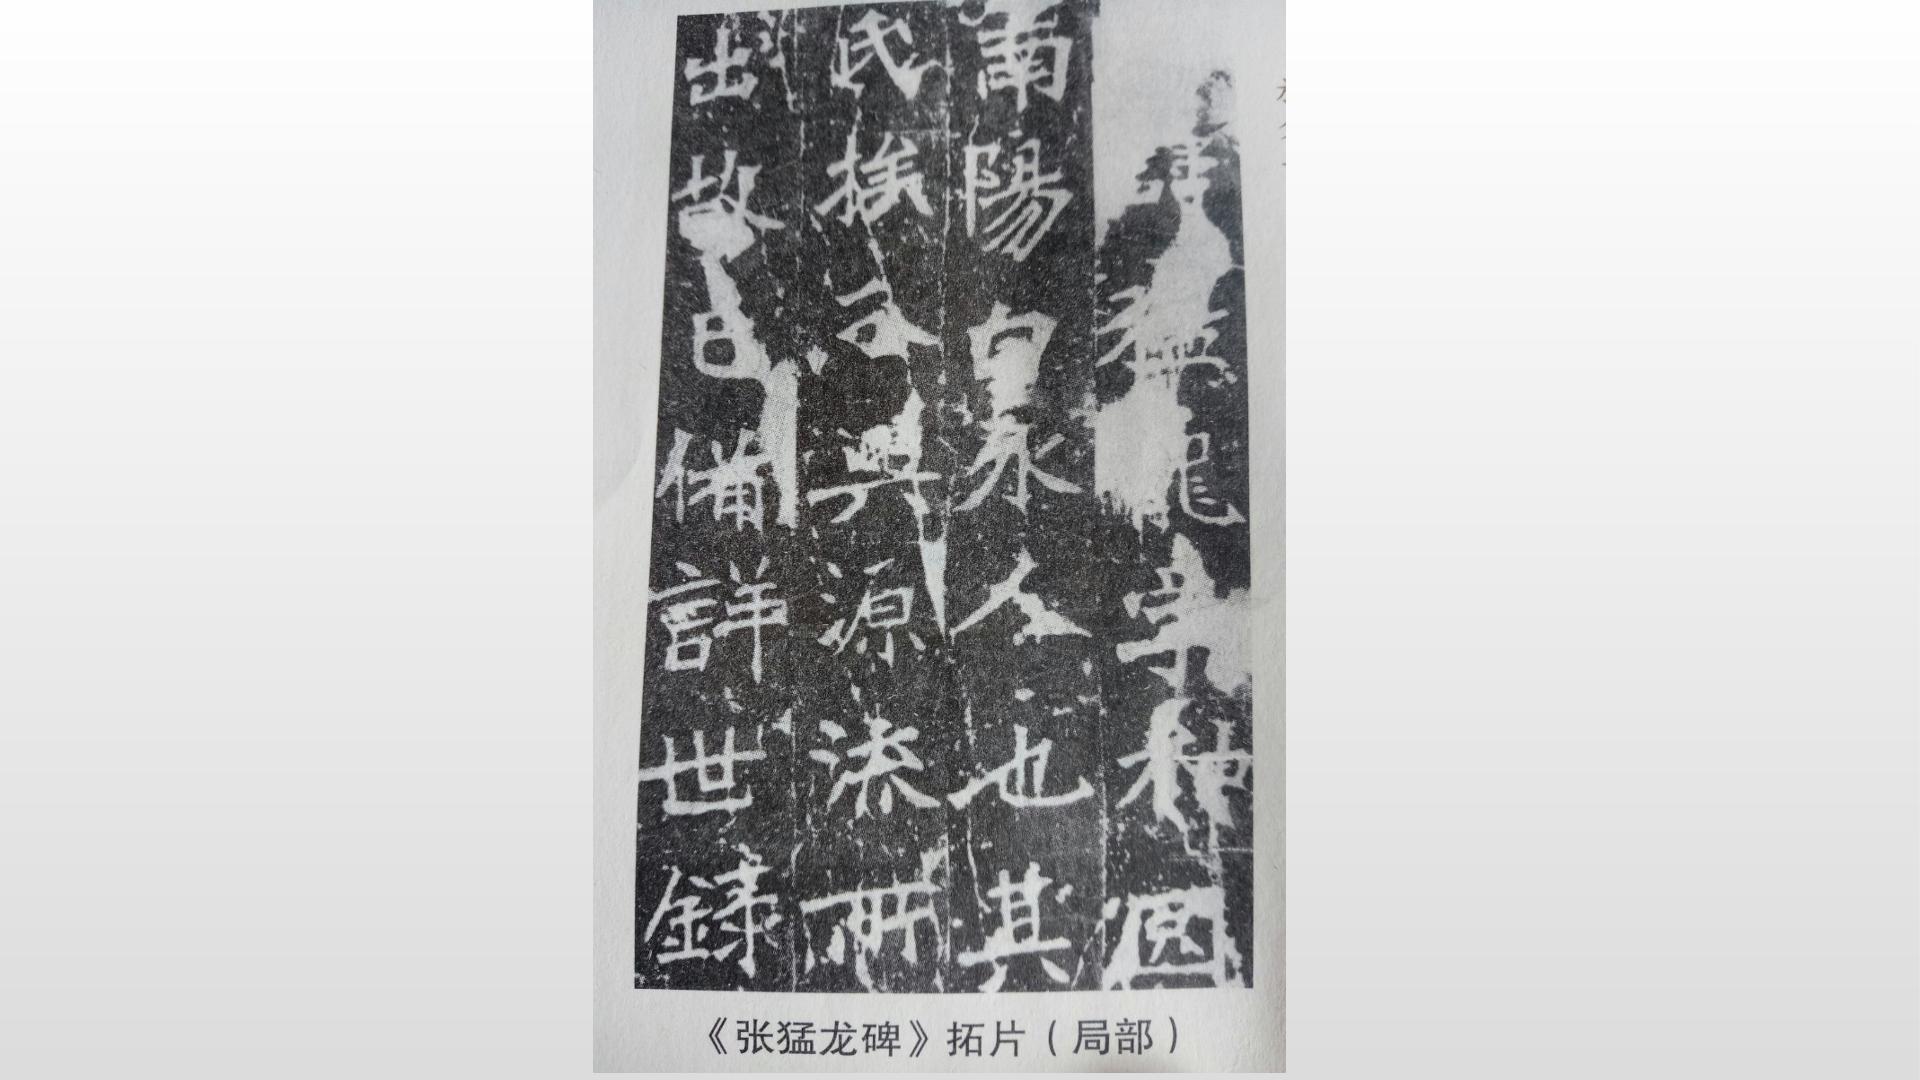 諱猛龍字神囧
南陽白水人也其
氏族分興源流所
出故已備詳世錄
《张猛龙碑》拓片（局部）